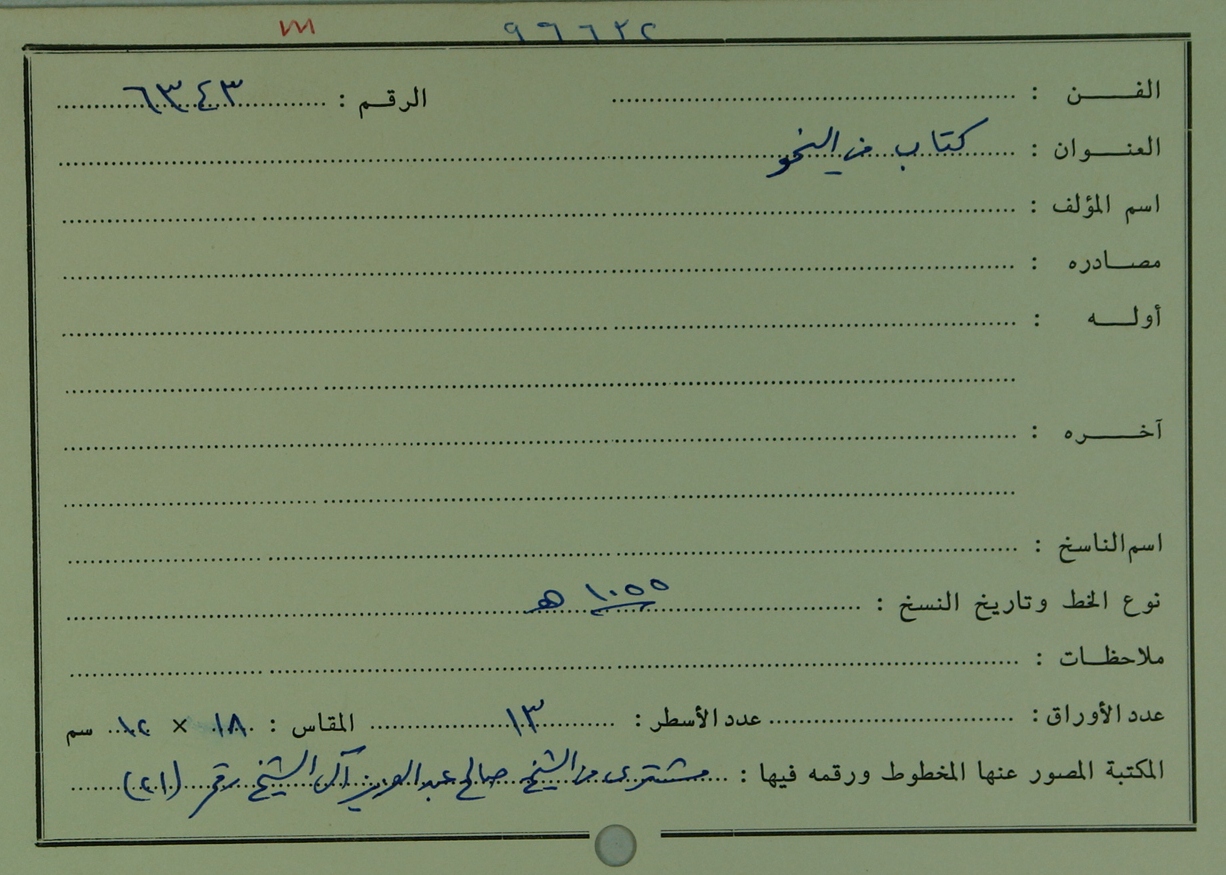 ٩٩٦٢٢
الفن : الرقم : ٦٣٤٣
العنوان : كتاب في النحو
اسم المؤلف :
مصادره :
أوله :
آخره :
اسم الناسخ :
نوع الخط وتاريخ النسخ : ١٠٥٥ هـ
ملاحظات :
عدد الأوراق : عدد الأسطر : ١٣ المقاس : ١٨ × ١٢ سم
المكتبة المصور عنها المخطوط ورقمه فيها : مشترى من الشيخ صالح عبد العزيز آل الشيخ رقم (٢١)